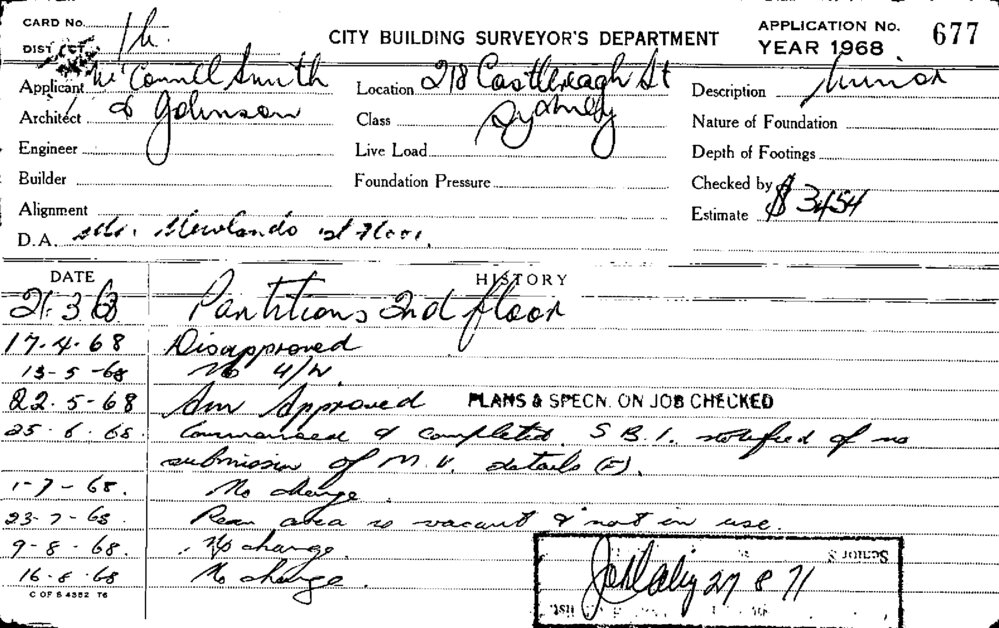 CARD No.
CITY BUILDING SURVEYOR'S DEPARTMENT
APPLICATION No. 677
YEAR 1968
DISTRICT
Applicant McConnel Smith
Location 218 Castlereagh St
Description Minor
Architect & Johnson
Class Sydney
Nature of Foundation
Engineer
Live Load
Depth of Footings
Builder
Foundation Pressure
Checked by
Alignment
Estimate $3454
D.A. Newlands 1st Floor.
DATE HISTORY
21.3.68 Partitions 2nd floor
17.4.68 Disapproved
13-5-68 No
22.5-68 Am Approved PLANS & SPECN. ON JOB CHECKED
25.6.68. Commenced & completed. S.B.I. notified of no
submission of M.V. details (F).
1-7-68. No change.
23-7-68. Rear area is vacant & not in use.
9-8-68. No change.
16-8-68 No change.
27 8 71
C OF S 4382 76